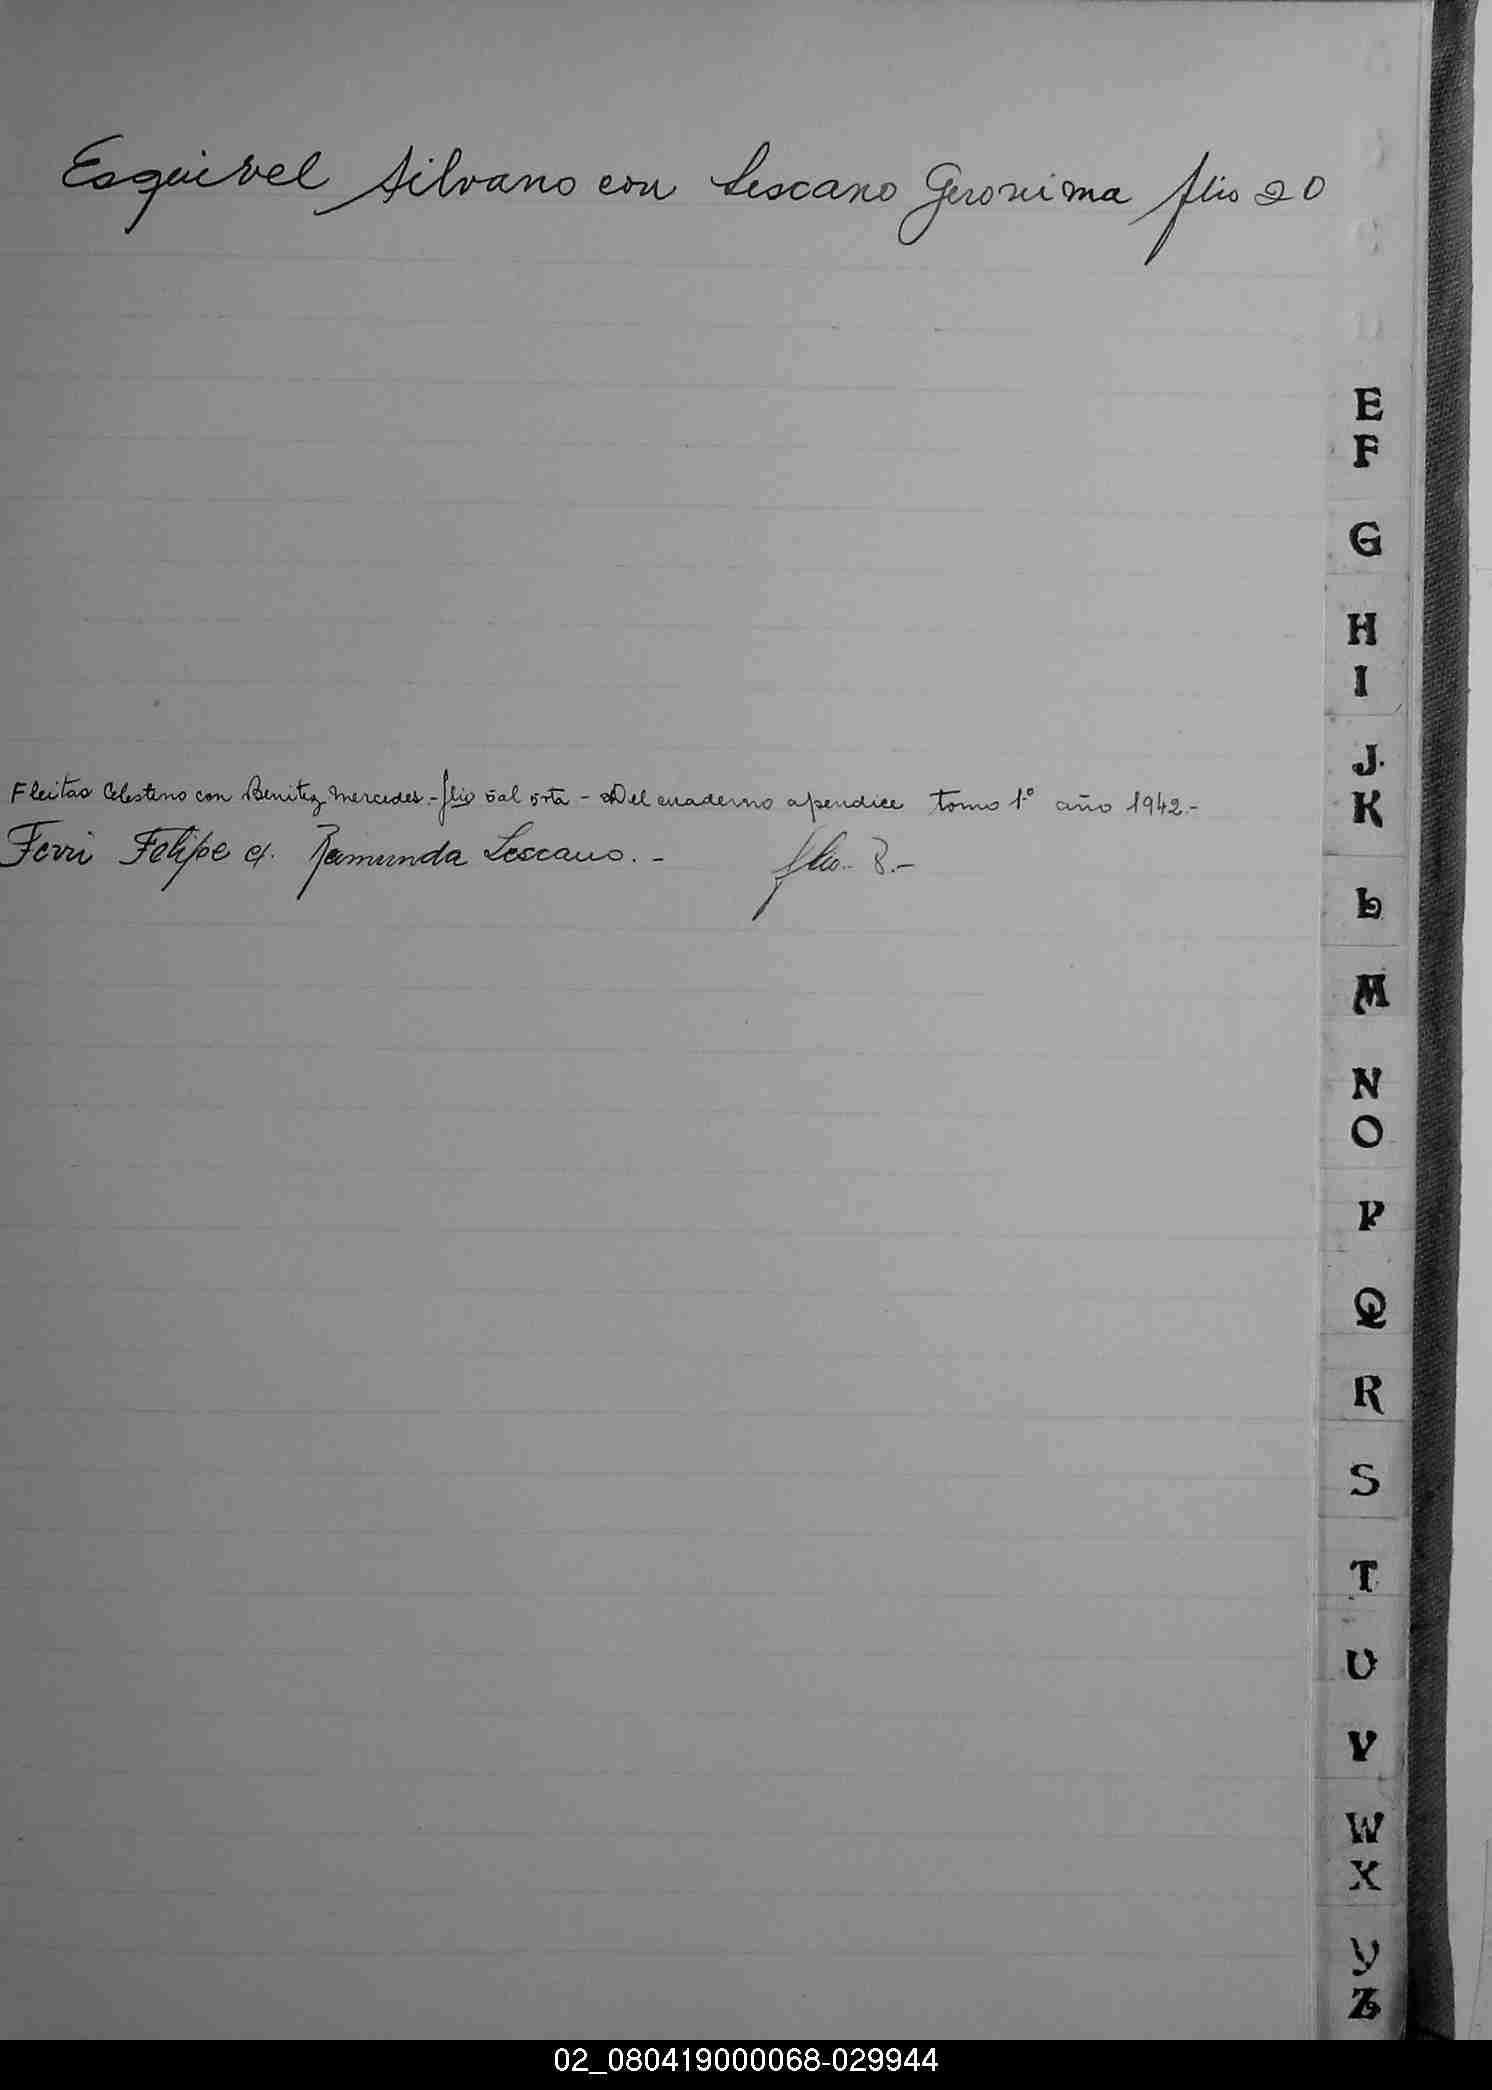 Esquivel Silvano con Lescano Geronima flio 20
E
F
G
H
I
J
K
Fleitas Celestino con Benitez Mercedes.- flio 5 al 5vta - Del cuaderno apendice tomo 1.º año 1942.-
Ferri Felipe c/. Ramunda Lescano. - flio.. 3.-
L
M
N
O
P
Q
R
S
T
U
V
W
X
Y
Z
02_080419000068-029944